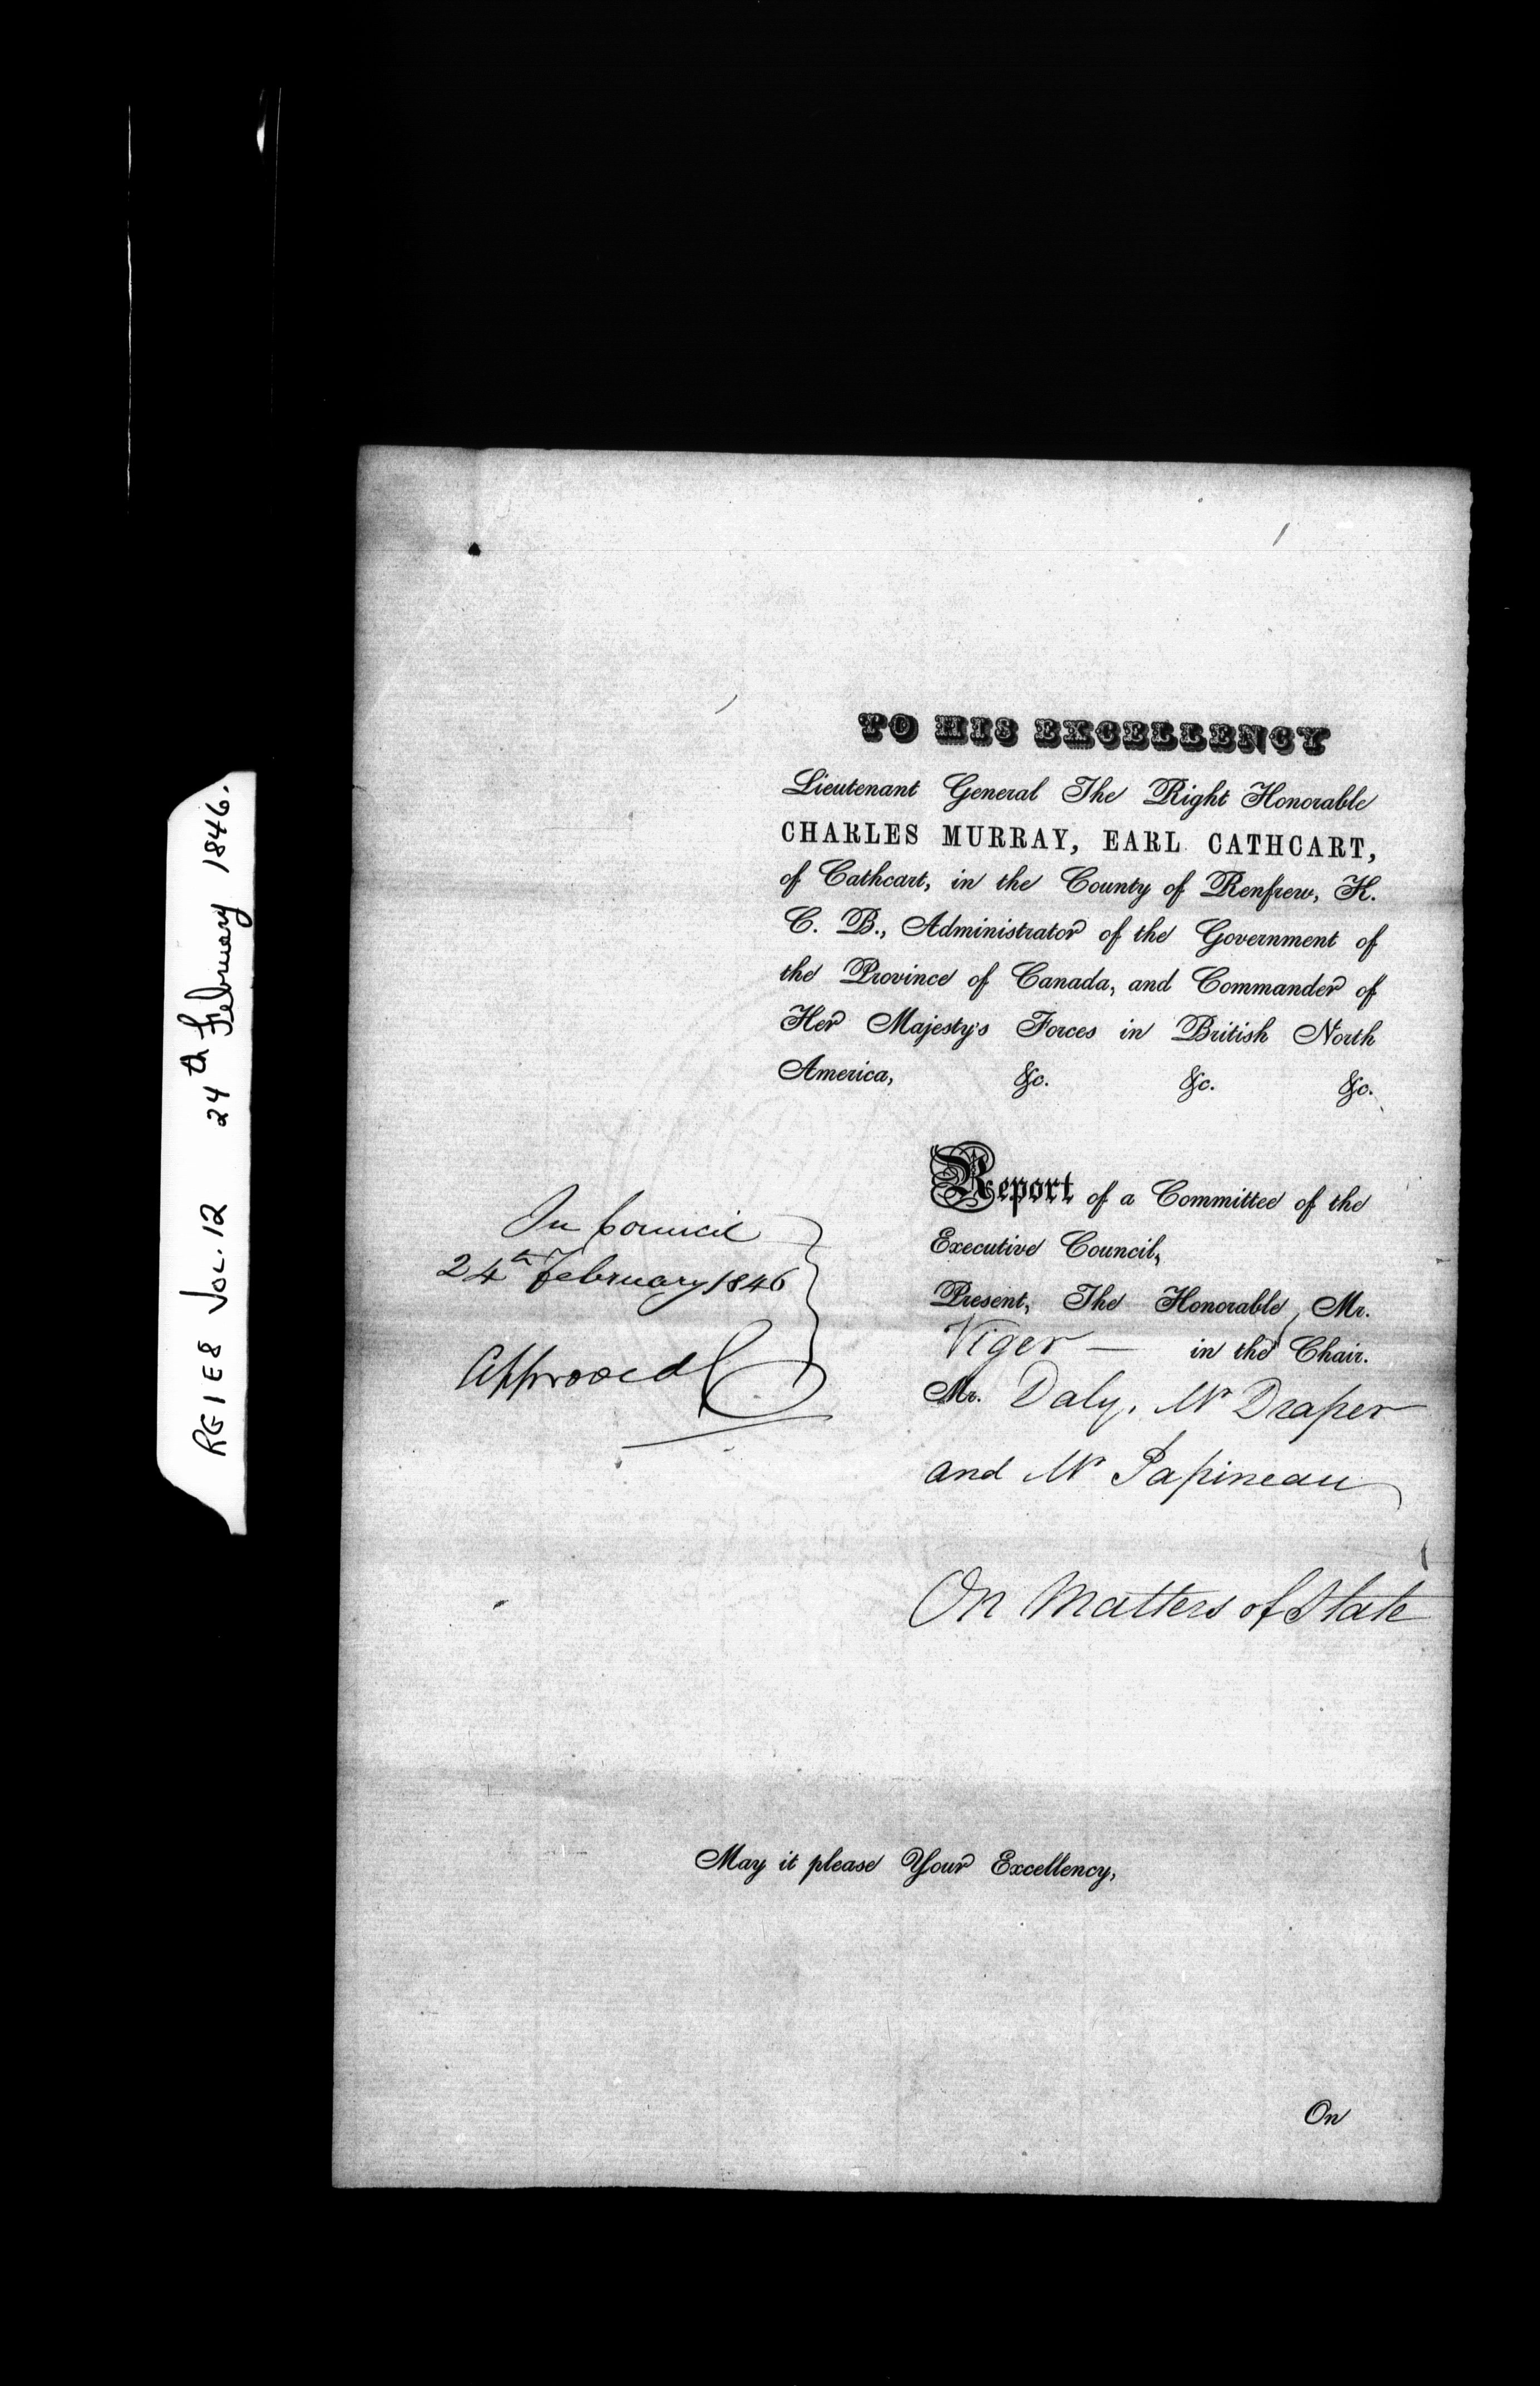 RG1E8 VOL. 12 24th February 1846.
TO HIS EXCELLENCY
Lieutenant General The Right Honorable
CHARLES MURRAY, EARL CATHCART,
of Cathcart, in the County of Renfrew, K.
C. B., Administrator of the Government of
the Province of Canada, and Commander of
Her Majesty's Forces in British North
America, &c. &c. &c.
In Council
24th February 1846
Approved
Report of a Committee of the
Executive Council,
Present, The Honorable, Mr.
Viger — in the Chair.
Mr. Daly, Mr Draper
and Mr Papineau
On Matters of State
May it please Your Excellency,
On